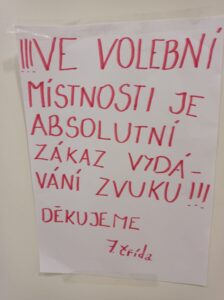 !!!VE VOLEBNÍ
MÍSTNOSTI JE
ABSOLUTNÍ
ZÁKAZ VYDÁ-
VÁNÍ ZVUKU!!!
DĚKUJEME
7. třída